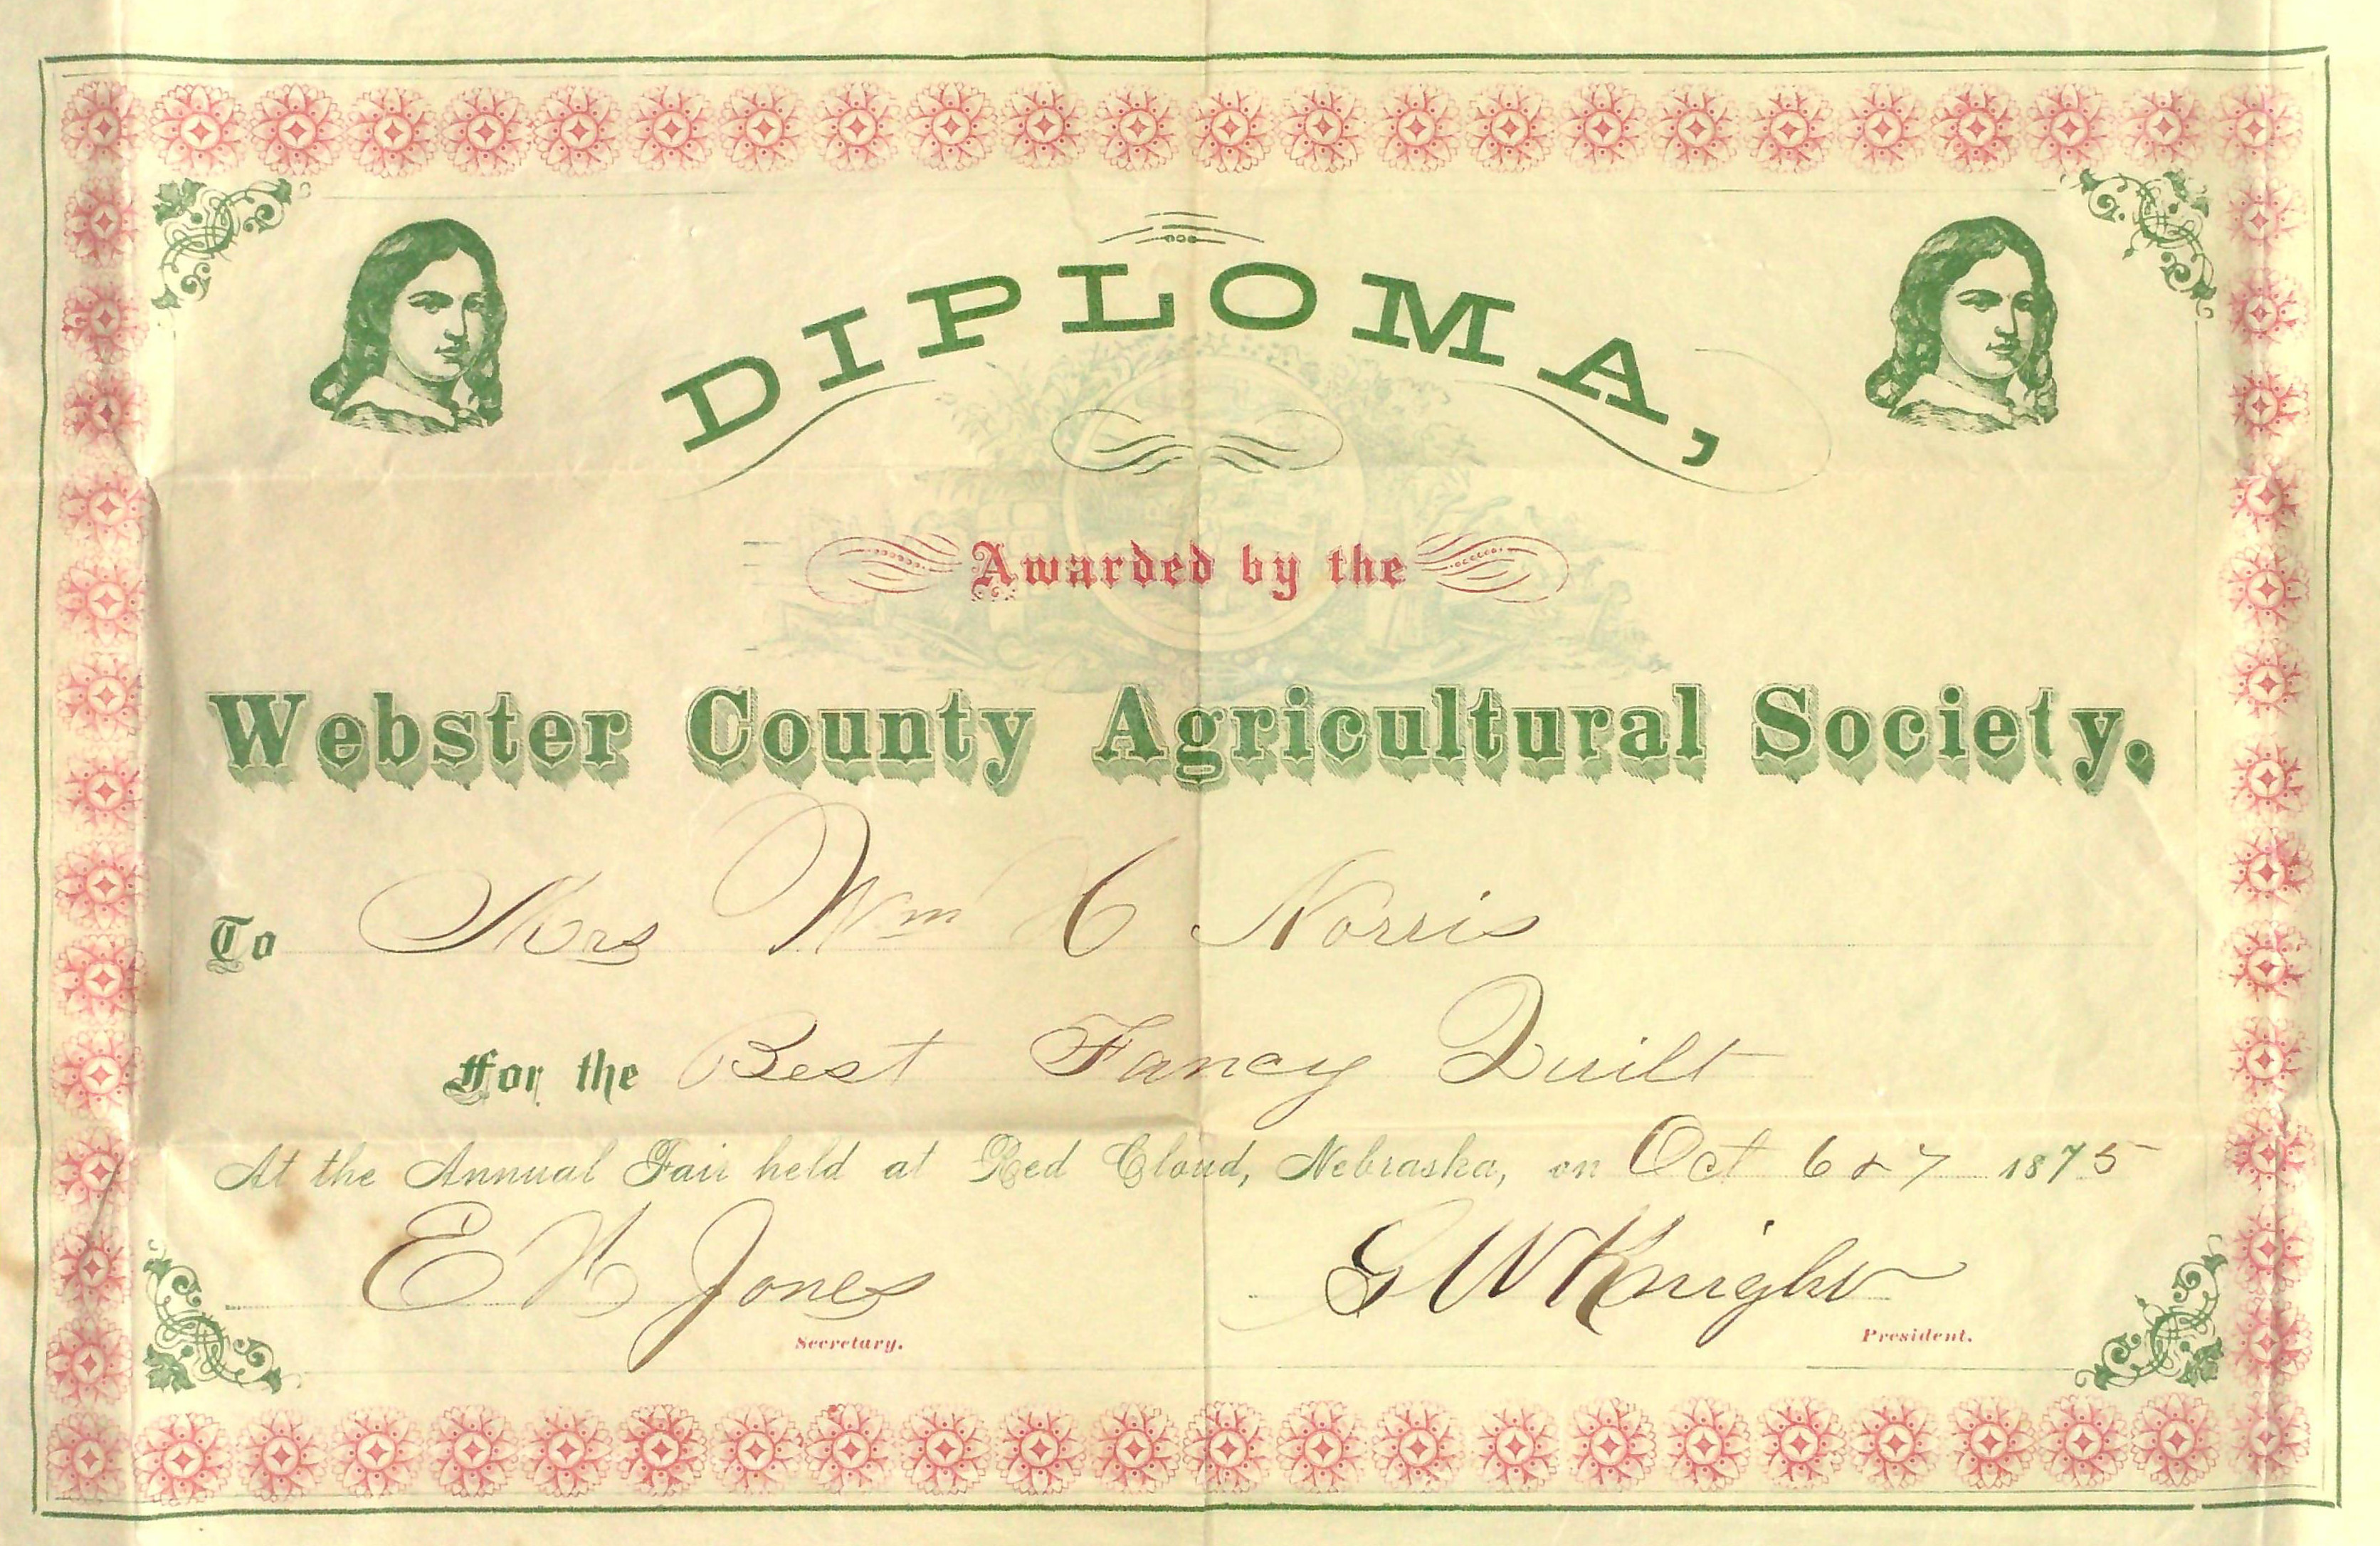 DIPLOMA,
Awarded by the
Webster County Agricultural Society.
To Mrs Wm C Norris
For the Best Fancy Quilt
At the Annual Fair held at Red Cloud, Nebraska, on Oct 6 & 7 1875
E H Jones
G W Knight
Secretary.
President.